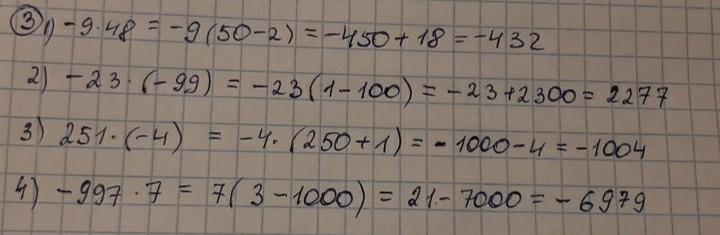 ③ 1) -9·48 = -9(50-2) = -450+18 = -432
2) -23·(-99) = -23(1-100) = -23+2300 = 2277
3) 251·(-4) = -4·(250+1) = -1000-4 = -1004
4) -997·7 = 7(3-1000) = 21-7000 = -6979